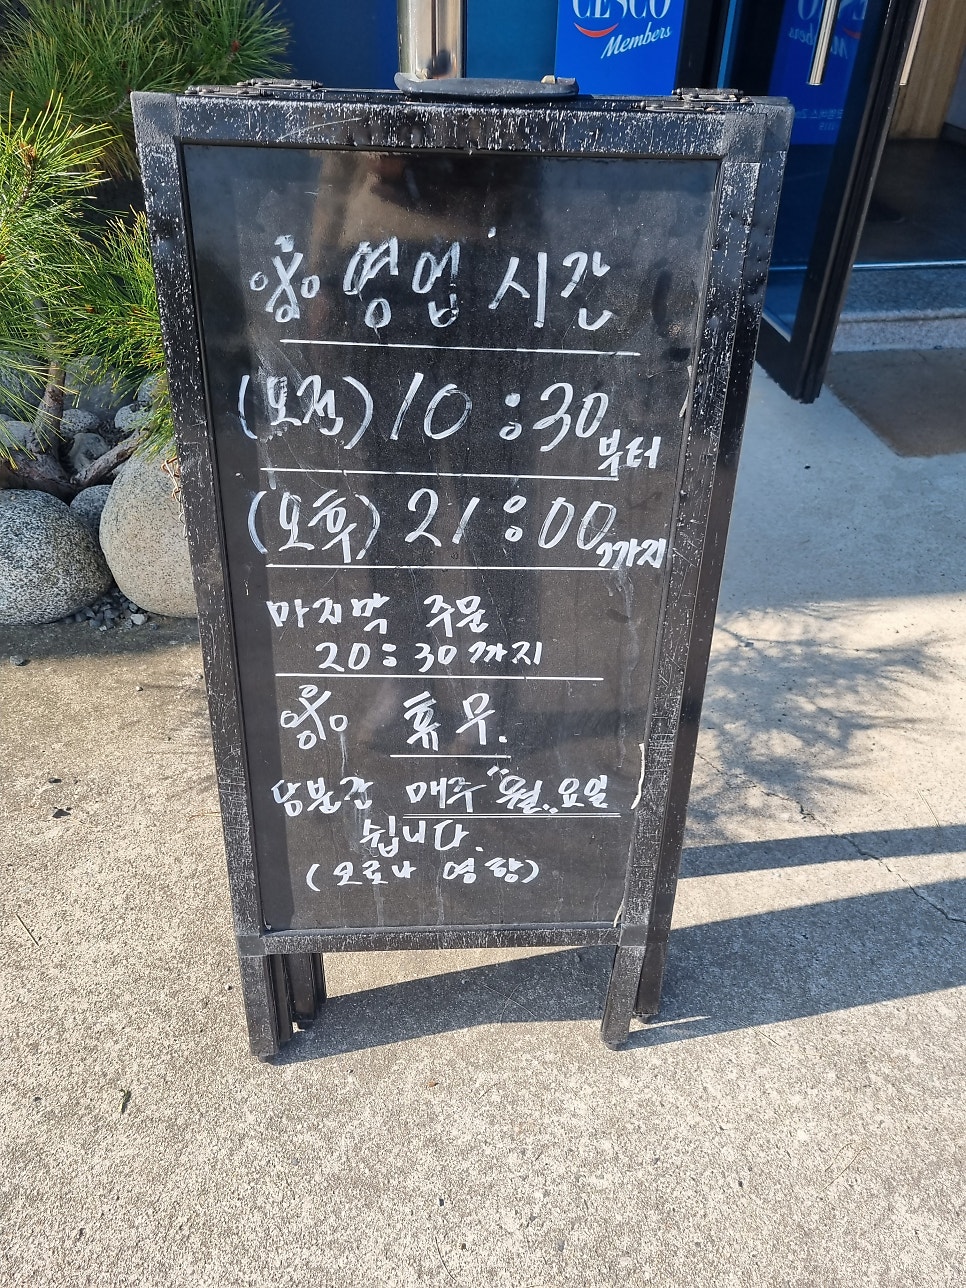 CESCO
Members
영업 시간
(오전) 10:30부터
(오후) 21:00까지
마지막 주문
20:30까지
휴무.
당분간 매주 "월"요일
쉽니다.
(코로나 영향)